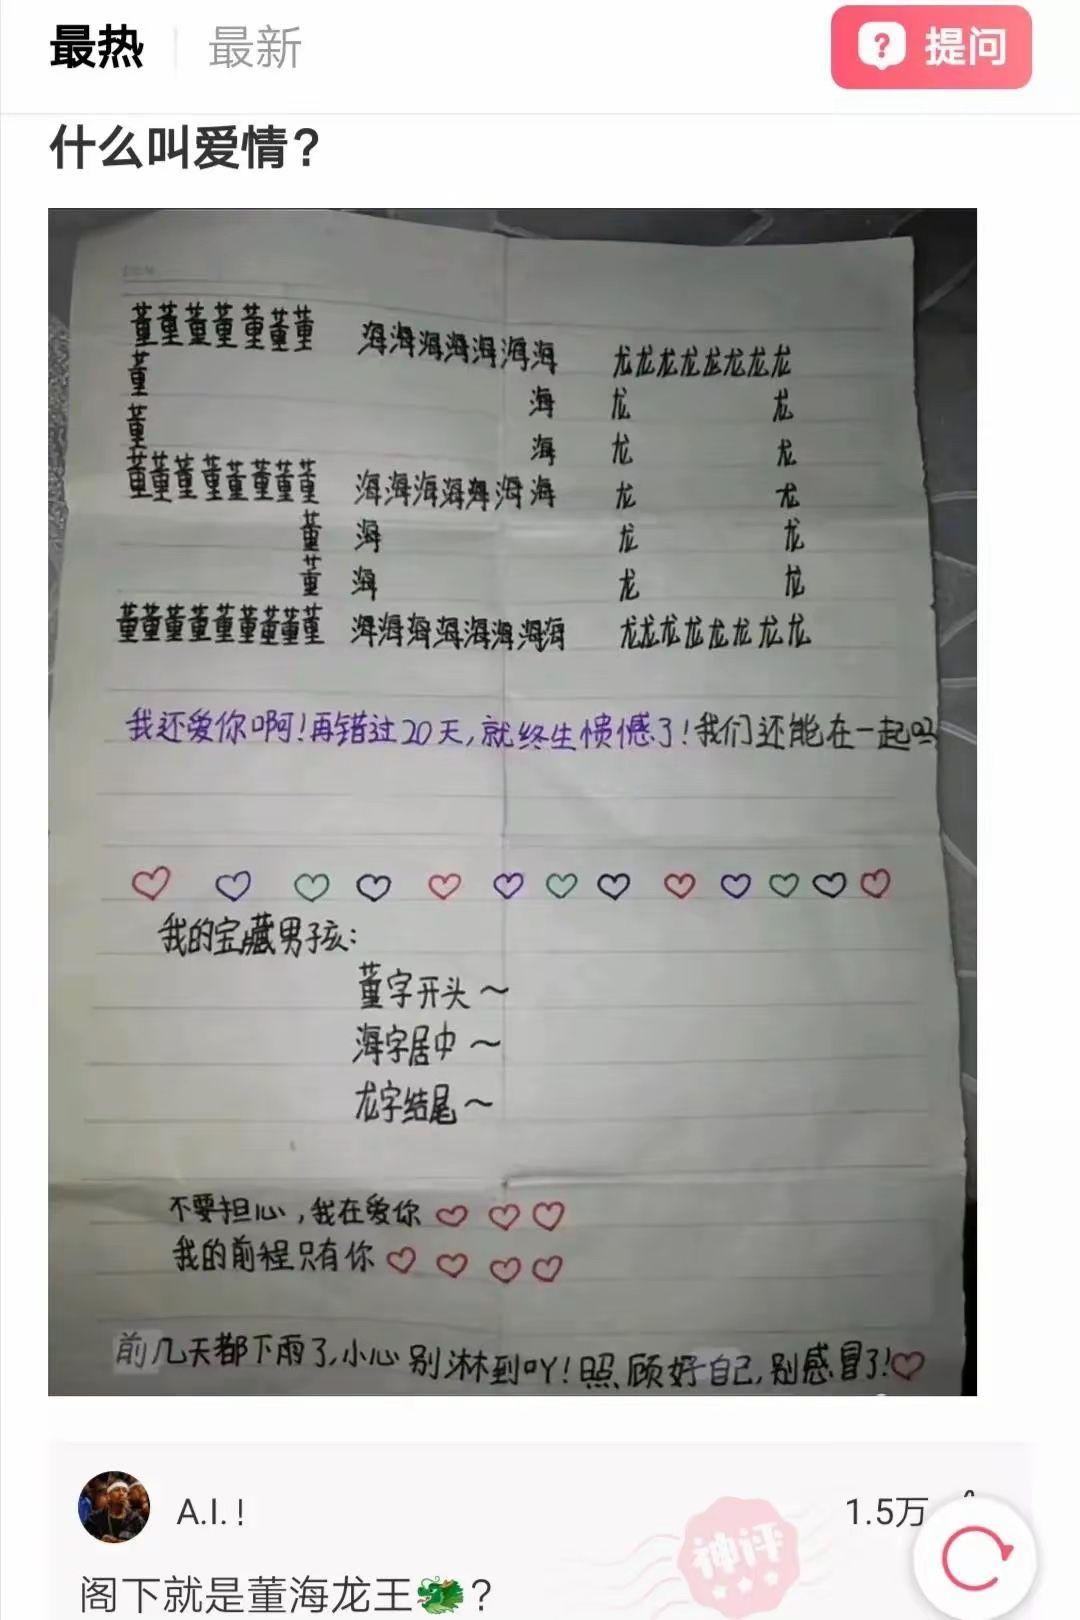 最热 最新 提问
什么叫爱情?
董董董董董董董 海海海海海海海 龙龙龙龙龙龙龙龙
董 海 龙 龙
董 海 龙 龙
董董董董董董董董 海海海海海海海 龙 龙
董 海 龙 龙
董 海 龙 龙
董董董董董董董董董 海海海海海海海海 龙龙龙龙龙龙龙龙
我还爱你啊!再错过20天,就终生愦憾了!我们还能在一起吗
我的宝藏男孩:
董字开头~
海字居中~
龙字结尾~
不要担心,我在爱你
我的前程只有你
前几天都下雨了,小心别淋到吖!照顾好自己,别感冒了!
A.I.! 1.5万
神评
阁下就是董海龙王🐲?